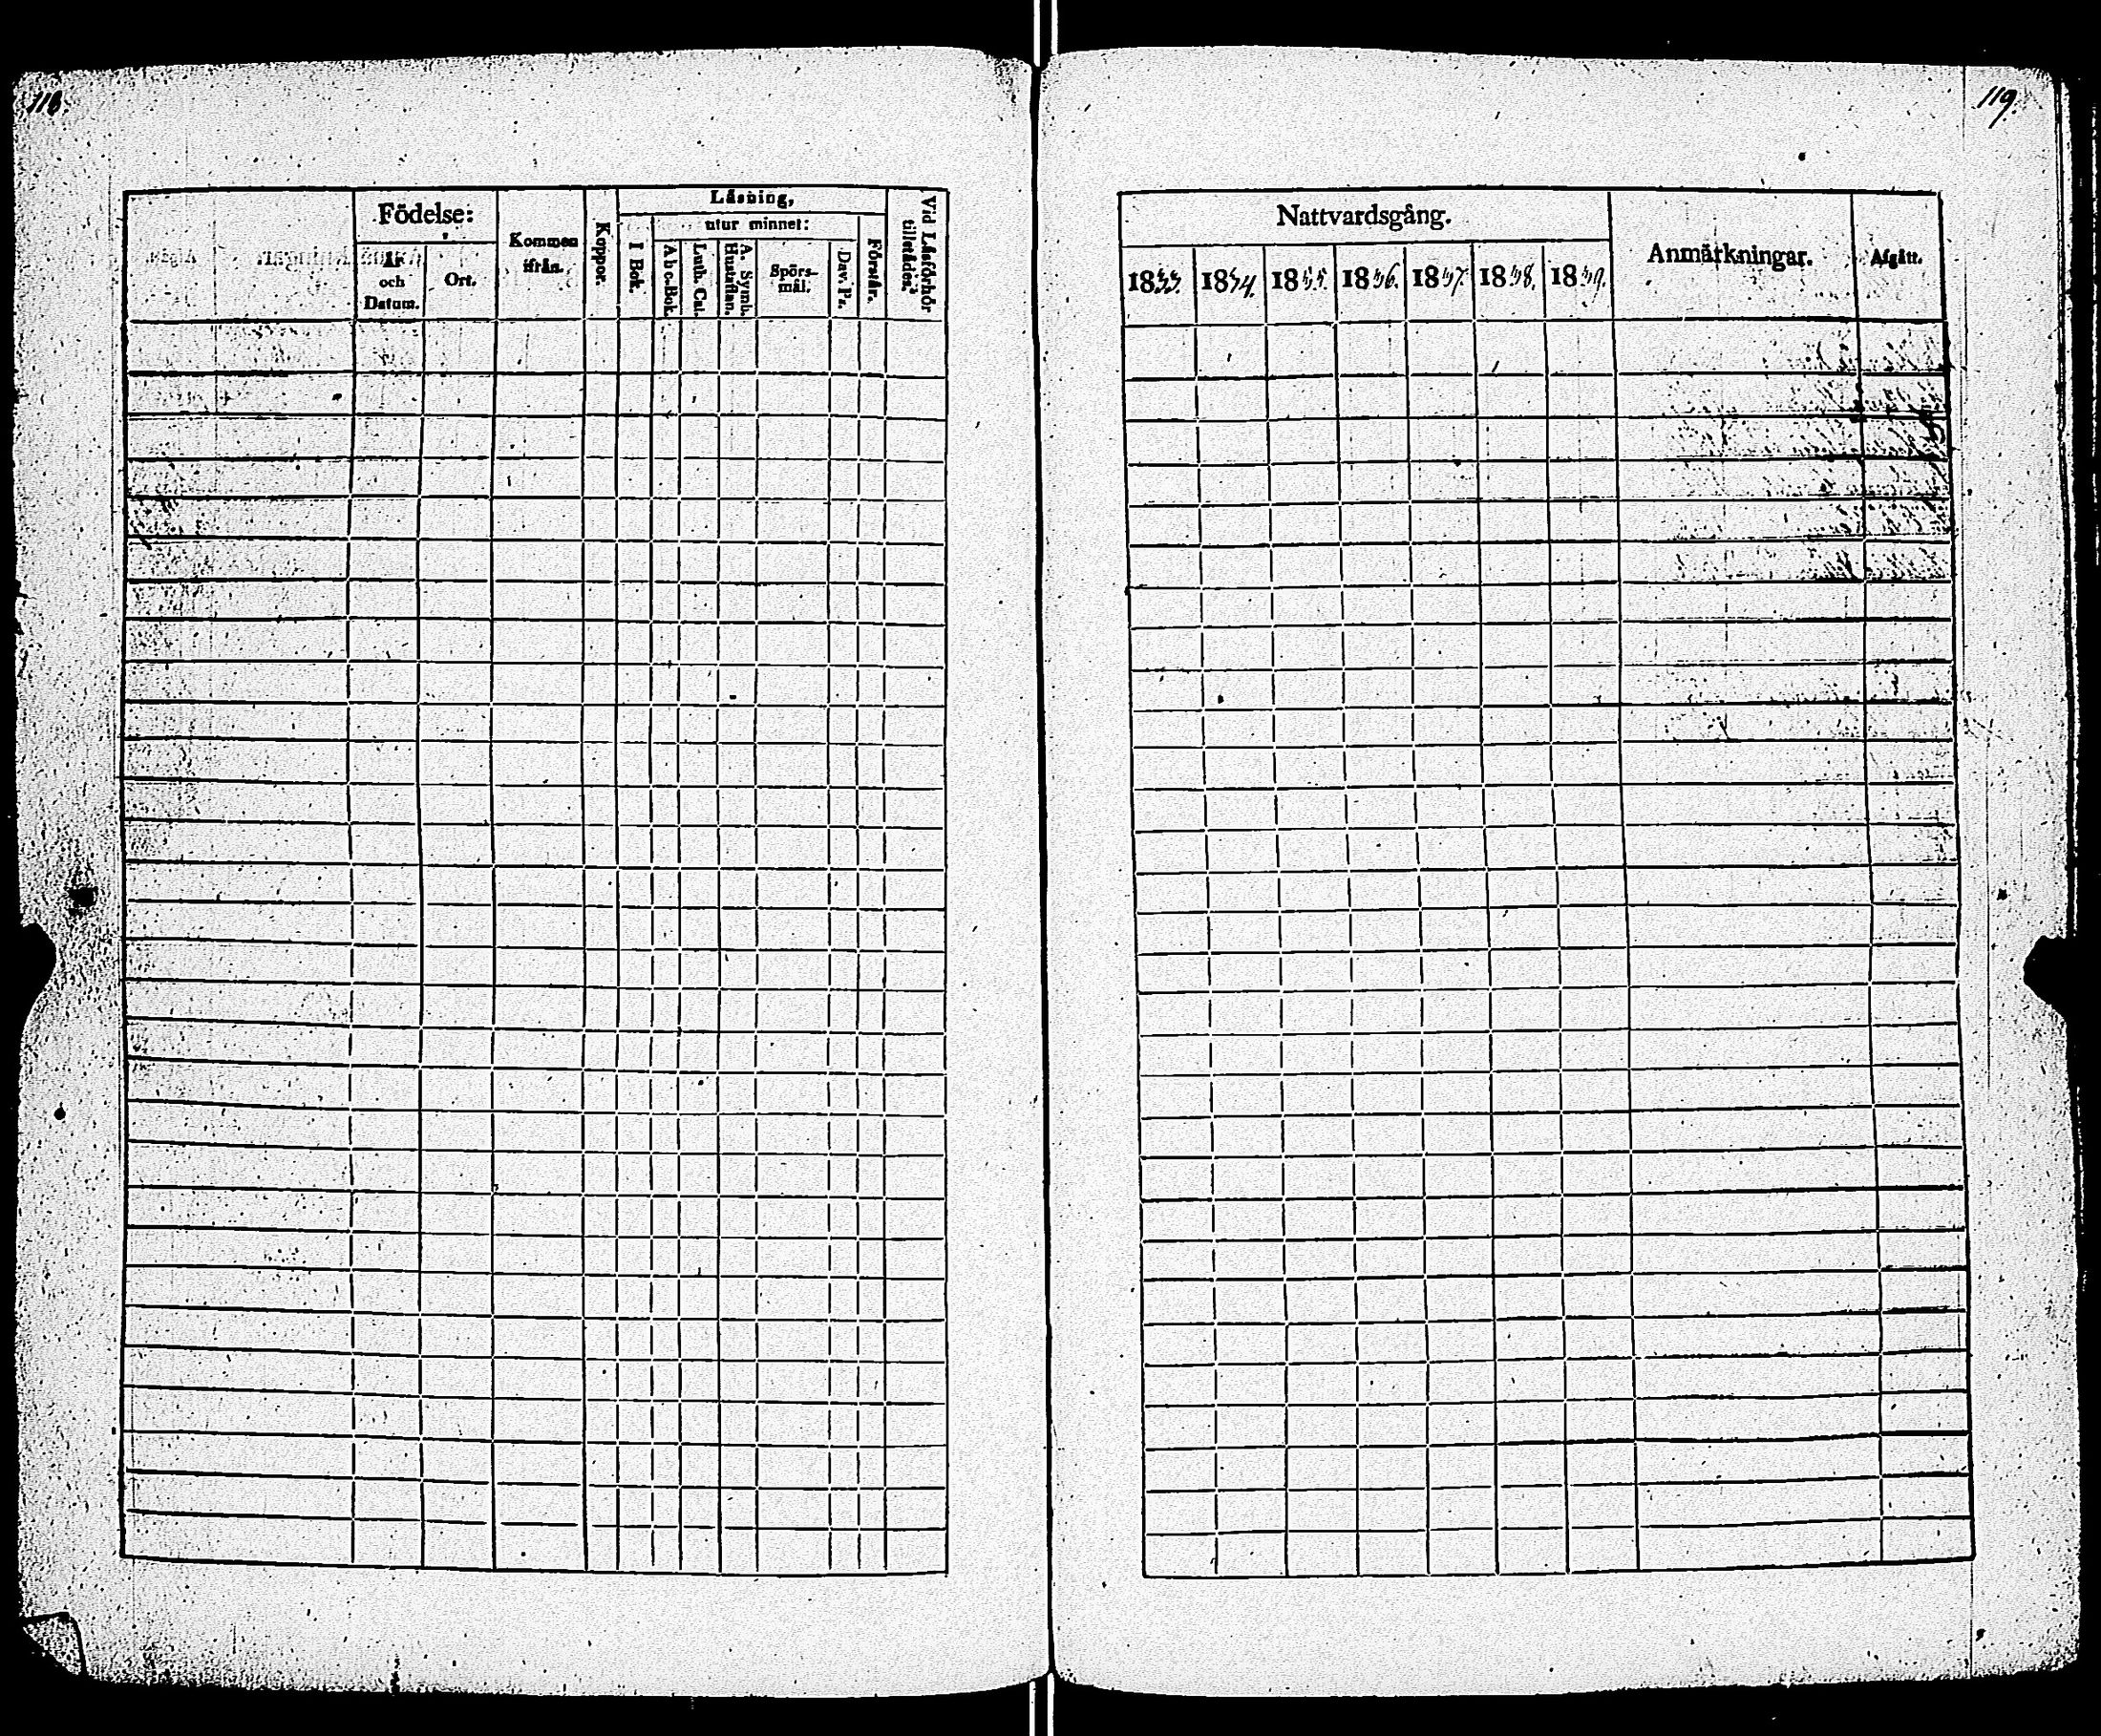 118.
Födelse:
År och Datum.
Ort.
Kommen ifrån.
Koppor.
Läsning,
I Bok.
utur minnet:
A b c-Bok.
Luth. Cat.
A. Symb. Hustaflan.
Spörs-mål.
Dav. Ps.
Förstår.
Vid Läsförhör tillstädes.
119.
Nattvardsgång.
1833. 1834. 1835. 1836. 1837. 1838. 1839.
Anmärkningar.
Afgått.